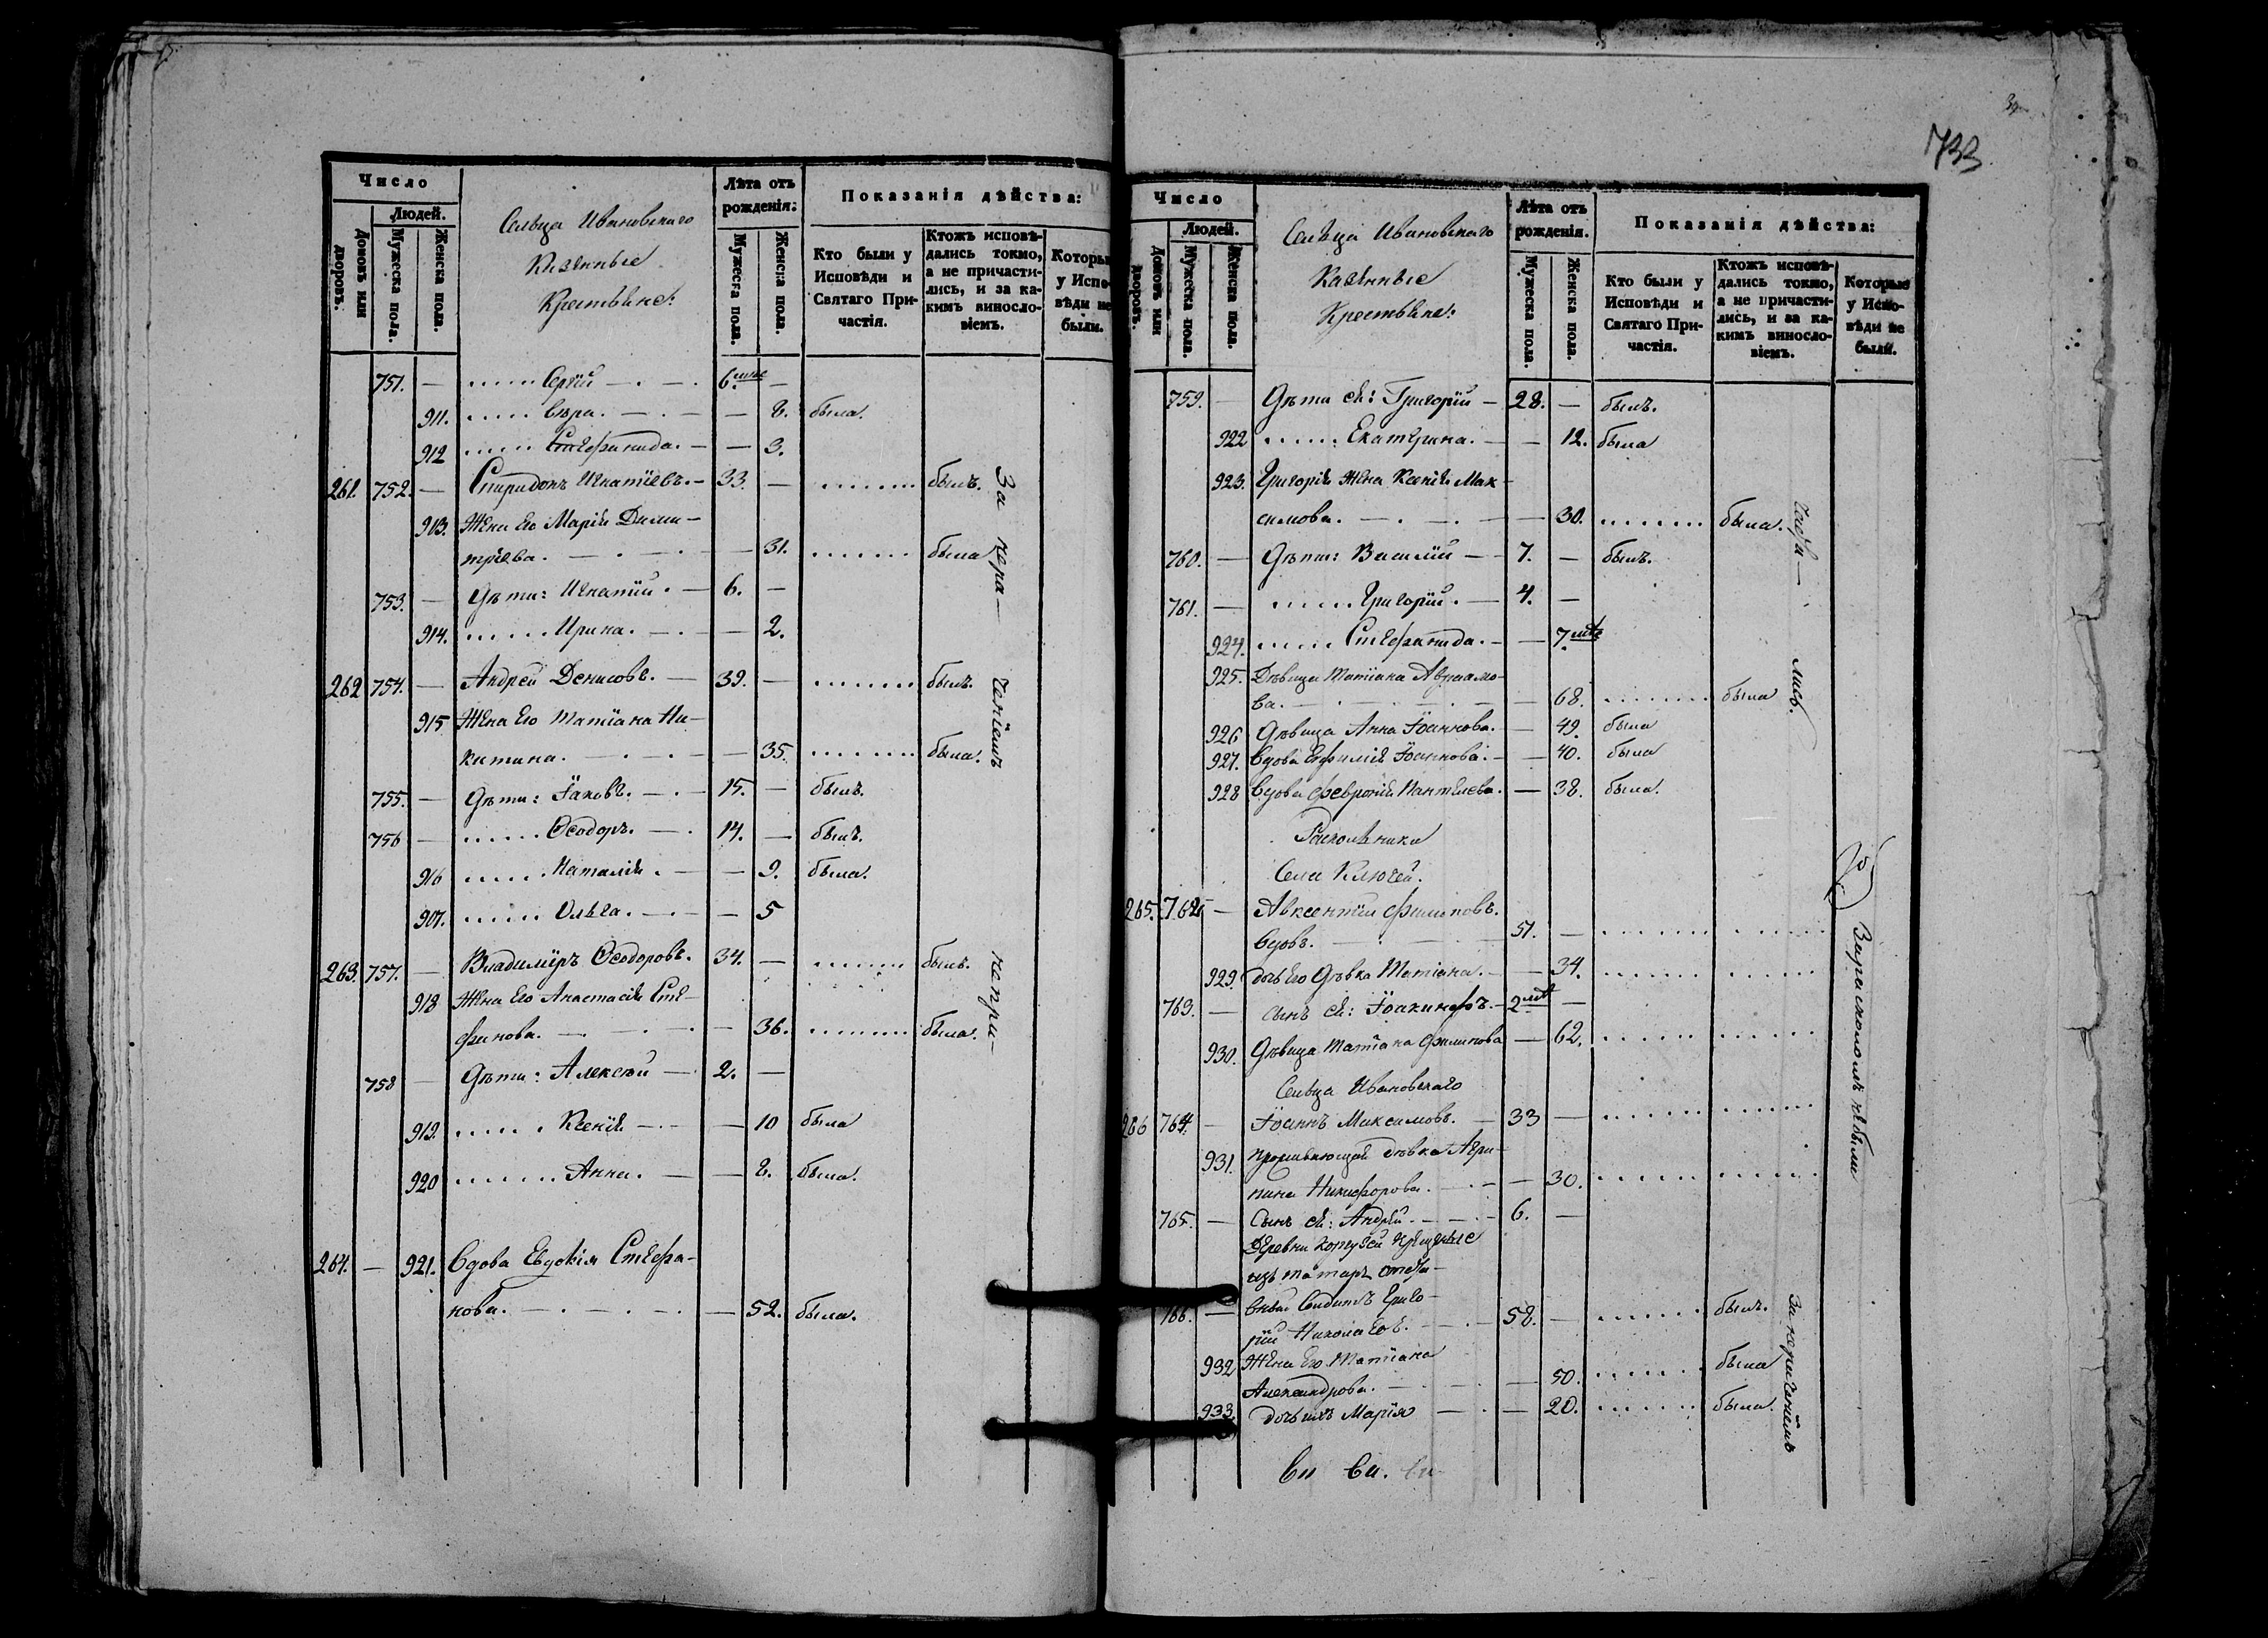 Число
Людей.
Домовъ или дворовъ.
Мужеска пола.
Женска пола.
Сельца Ивановскаго
Казенные
Крестьяне:
Лѣта отъ рожденія:
Мужеска пола.
Женска пола.
Показанія дѣйства:
Кто были у Исповѣди и Святаго Причастія.
Ктожъ исповѣдались токмо, а не причастились, и за какимъ винословіемъ.
Которы у Испо- вѣди не были.
751. — ...... Сергій — . — . 6. мѣс —
911. ..... Вѣра. — . — — 8. была.
912 ...... Стефанида. — — 3.
261. 752. — Спиридонъ Игнатіевъ. — 33. — ........ былъ.
913. Жена Его Марія Дими-
тріева. — . — . — — 31. ........ была
753. — Дѣти: Игнатій. — 6. —
914. ...... Ирина. — . — — 2.
262 754. — Андрей Денисовъ. — 39. — ........ былъ.
915 Жена Его Татіана Ни-
китина. — . — . — — 35. ........ была.
755. — Дѣти: Іаковъ. — . — 15. — былъ.
756 — ...... Ѳеодоръ. — . 14. — былъ.
916 ...... Наталія. — — 9. была.
907. ...... Ольга. — . — — 5
263. 757. — Владиміръ Ѳеодоровъ. 34. — ........ былъ.
918 Жена Его Анастасія Сте-
фанова. — . — . — 36. ........ была.
758 — Дѣти: Алексѣй — 2. —
919. ...... Ксенія — . — — 10 была
920 ....... Анна. — — 8. была.
264. — 921. Вдова Евдокія Стефа-
нова. — . — . — . — 52. была.
За нера-
ченіемъ
непри-
733
Число
Людей.
Домовъ или дворовъ.
Мужеска пола.
Женска пола.
Сельца Ивановскаго
Казенные
Крестьяне:
Лѣта отъ рожденія.
Мужеска пола.
Женска пола.
Показанія дѣйства:
Кто были у Исповѣди и Святаго Причастія.
Ктожъ исповѣдались токмо, а не причастились, и за какимъ винословіемъ.
Которые у Исповѣди не были.
759. — Дѣти ея: Григорій — 28. — былъ.
922 ...... Екатерина. — — 12. была
923. Григорія Жена Ксенія Мак-
симова. — . — . — — 30. ........ была.
760. — Дѣти: Василій — 7. — былъ.
761. — ...... Григорій. — 4. —
924. ...... Стефанида. — — 7. мѣс
925. Дѣвица Татіана Авраамо-
ва. — . — . — — 68. ........ была
926 Дѣвица Анна Іоаннова. — 49. была
927. Вдова Евфимія Іоаннова. — — 40. была
928 Вдова Февронія Пантелеева. — 38. была.
Раскольники
Села Ключей.
265. 762. — Авксентій Филиповъ.
вдовъ. — . — . — 51. — ........ .......
929. дочь Его Дѣвка Татіана. — — 34. ........ .......
763. — сынъ ея: Іоакинфъ. — 2 мѣс —
930. Дѣвица Татіана Филипова — 62. ........ .......
Сельца Ивановскаго
266 764. — Іоаннъ Максимовъ. — 33 — ........ .......
931. проживающая дѣвка Агри-
пина Никифорова. — . — — 30. ........ .......
765. — Сынъ ея: Андрей. — . — 6. —
Деревни крещеные
изъ татаръ отста-
766. — вный Солдатъ Григо-
рій Николаевъ. — . — 58. — ...... былъ.
932 Жена Его Татіана
Александрова. — . — — 50. ...... была
933. дочь ихъ Марія — . — — 20. ...... была.
части-
лись.
За расколомъ не были
За нераченіемъ